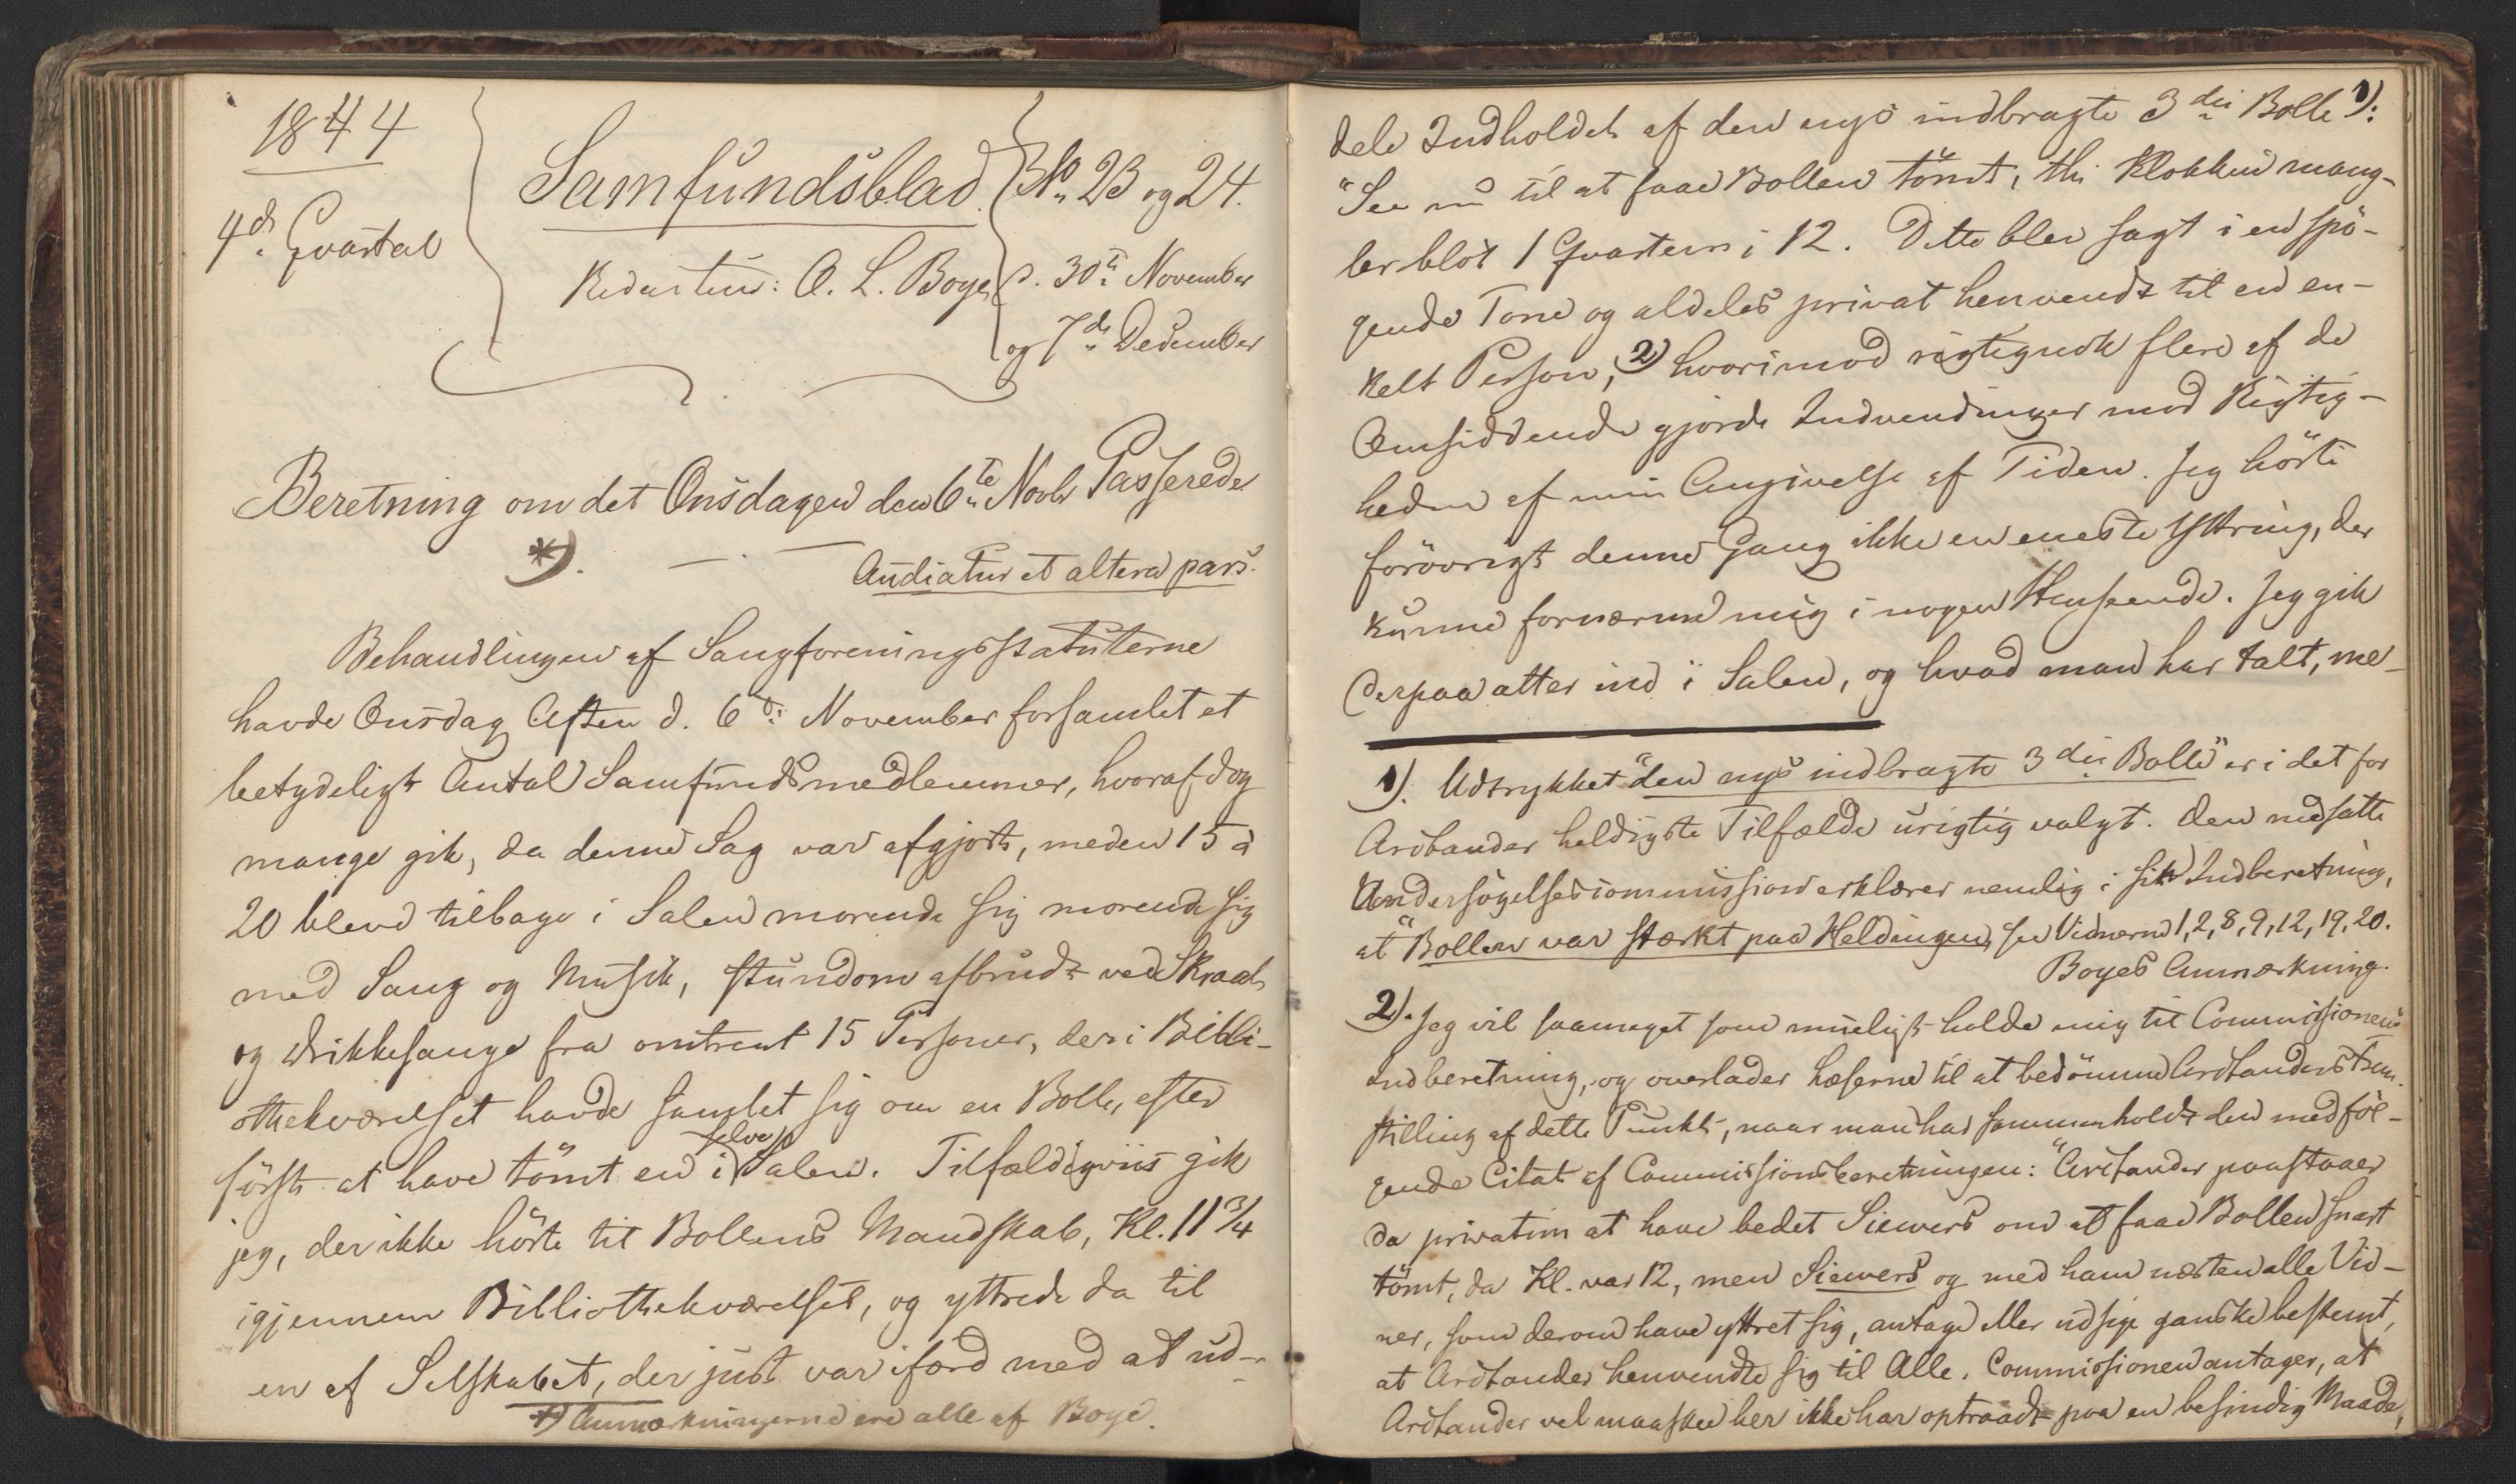 1844
4de Qvartal
Samfundsblad
No 23 og 24.
Redacteur: O. L. Boye
d. 30te November
og 7de December
Beretning om det Onsdagen den 6te Novbr Passerede
*).
Audiatur et altera pars.
Behandlingen af Sangforeningsstatuterne
havde Onsdag Aften d. 6de November forsamlet et
betydeligt Antal Samfundsmedlemmer, hvoraf dog
mange gik, da denne Sag var afgjort, meden 15 à
20 bleve tilbage i Salen morende sig morende sig
med Sang og Musik, stundom afbrudt ved Skraal
og Drikkesange fra omtrent 15 Personer, der i Bibli-
othekværelset havde samlet sig om en Bolle, efter
først at have tömt en i selve Salen. Tilfældigviis gik
jeg, der ikke hörte til Bollens Mandskab, Kl. 11 3/4
igjennem Bibliothekværelset, og yttrede da til
en af Selskabet, der just var ifærd med at ud-
*) Anmærkningerne ere alle af Boye.
dele Indholdet af den nys indbragte 3die Bolle 1):
"See nu til at faae Bollen tömt, thi Klokken mang-
ler blot 1 Qvarteer i 12. Dette blev sagt i en spö-
gende Tone og aldeles privat henvendt til en en-
kelt Person, 2) hvorimod rigtignok flere af de
Omsiddende gjorde Indvendinger mod Rigtig-
heden af min Angivelse af Tiden. Jeg hörte
forövrigt denne Gang ikke en eneste Yttring, der
kunne fornærme mig i nogen Henseende. Jeg gik
derpaa atter ind i Salen, og hvad man har talt, me-
1). Udtrykket "den nys indbragte 3die Bolle" er i det for
Arctander heldigste Tilfælde urigtig valgt. Den nedsatte
Undersögelsescommission erklærer nemlig i sin Indberetning,
at "Bollen var stærkt paa Heldingen, see Vidnerne 1, 2, 8, 9, 12, 19, 20.
Boyes Anmærkning.
2). Jeg vil saameget som mueligt holde mig til Commissionens
Indberetning, og overlader Læserne til at bedömme Arctanders Frem-
stilling af dette Punkt, naar man har sammenholdt den medföl-
gende Citat af Commissionsberetningen: "Arctander paastaaer
da privatim at have bedet Siewers om at faae Bollen snart
tömt, da Kl. var 12, men Siewers og med ham næsten alle Vid-
ner, som derom have yttret sig, antage eller udsige ganske bestemt,
at Arctander henvendte sig til Alle. Commissionen antager, at
Arctander vel maaskee her ikke har optraadt paa en besindig Maade,